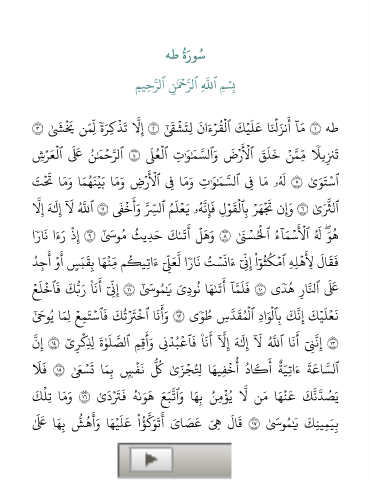 سُورَةُ طه
بِسْمِ ٱللَّهِ ٱلرَّحْمَٰنِ ٱلرَّحِيمِ
طه ۝١ مَآ أَنزَلْنَا عَلَيْكَ ٱلْقُرْءَانَ لِتَشْقَىٰٓ ۝٢ إِلَّا تَذْكِرَةً لِّمَن يَخْشَىٰ ۝٣
تَنزِيلًا مِّمَّنْ خَلَقَ ٱلْأَرْضَ وَٱلسَّمَٰوَٰتِ ٱلْعُلَى ۝٤ ٱلرَّحْمَٰنُ عَلَى ٱلْعَرْشِ
ٱسْتَوَىٰ ۝٥ لَهُۥ مَا فِى ٱلسَّمَٰوَٰتِ وَمَا فِى ٱلْأَرْضِ وَمَا بَيْنَهُمَا وَمَا تَحْتَ
ٱلثَّرَىٰ ۝٦ وَإِن تَجْهَرْ بِٱلْقَوْلِ فَإِنَّهُۥ يَعْلَمُ ٱلسِّرَّ وَأَخْفَى ۝٧ ٱللَّهُ لَآ إِلَٰهَ إِلَّا
هُوَ ۖ لَهُ ٱلْأَسْمَآءُ ٱلْحُسْنَىٰ ۝٨ وَهَلْ أَتَىٰكَ حَدِيثُ مُوسَىٰٓ ۝٩ إِذْ رَءَا نَارًا
فَقَالَ لِأَهْلِهِ ٱمْكُثُوٓا۟ إِنِّىٓ ءَانَسْتُ نَارًا لَّعَلِّىٓ ءَاتِيكُم مِّنْهَا بِقَبَسٍ أَوْ أَجِدُ
عَلَى ٱلنَّارِ هُدًى ۝١٠ فَلَمَّآ أَتَىٰهَا نُودِىَ يَٰمُوسَىٰٓ ۝١١ إِنِّىٓ أَنَا۠ رَبُّكَ فَٱخْلَعْ
نَعْلَيْكَ إِنَّكَ بِٱلْوَادِ ٱلْمُقَدَّسِ طُوًى ۝١٢ وَأَنَا ٱخْتَرْتُكَ فَٱسْتَمِعْ لِمَا يُوحَىٰٓ
۝١٣ إِنَّنِىٓ أَنَا ٱللَّهُ لَآ إِلَٰهَ إِلَّآ أَنَا۠ فَٱعْبُدْنِى وَأَقِمِ ٱلصَّلَوٰةَ لِذِكْرِىٓ ۝١٤ إِنَّ
ٱلسَّاعَةَ ءَاتِيَةٌ أَكَادُ أُخْفِيهَا لِتُجْزَىٰ كُلُّ نَفْسٍۭ بِمَا تَسْعَىٰ ۝١٥ فَلَا
يَصُدَّنَّكَ عَنْهَا مَن لَّا يُؤْمِنُ بِهَا وَٱتَّبَعَ هَوَىٰهُ فَتَرْدَىٰ ۝١٦ وَمَا تِلْكَ
بِيَمِينِكَ يَٰمُوسَىٰ ۝١٧ قَالَ هِىَ عَصَاىَ أَتَوَكَّؤُا۟ عَلَيْهَا وَأَهُشُّ بِهَا عَلَىٰ